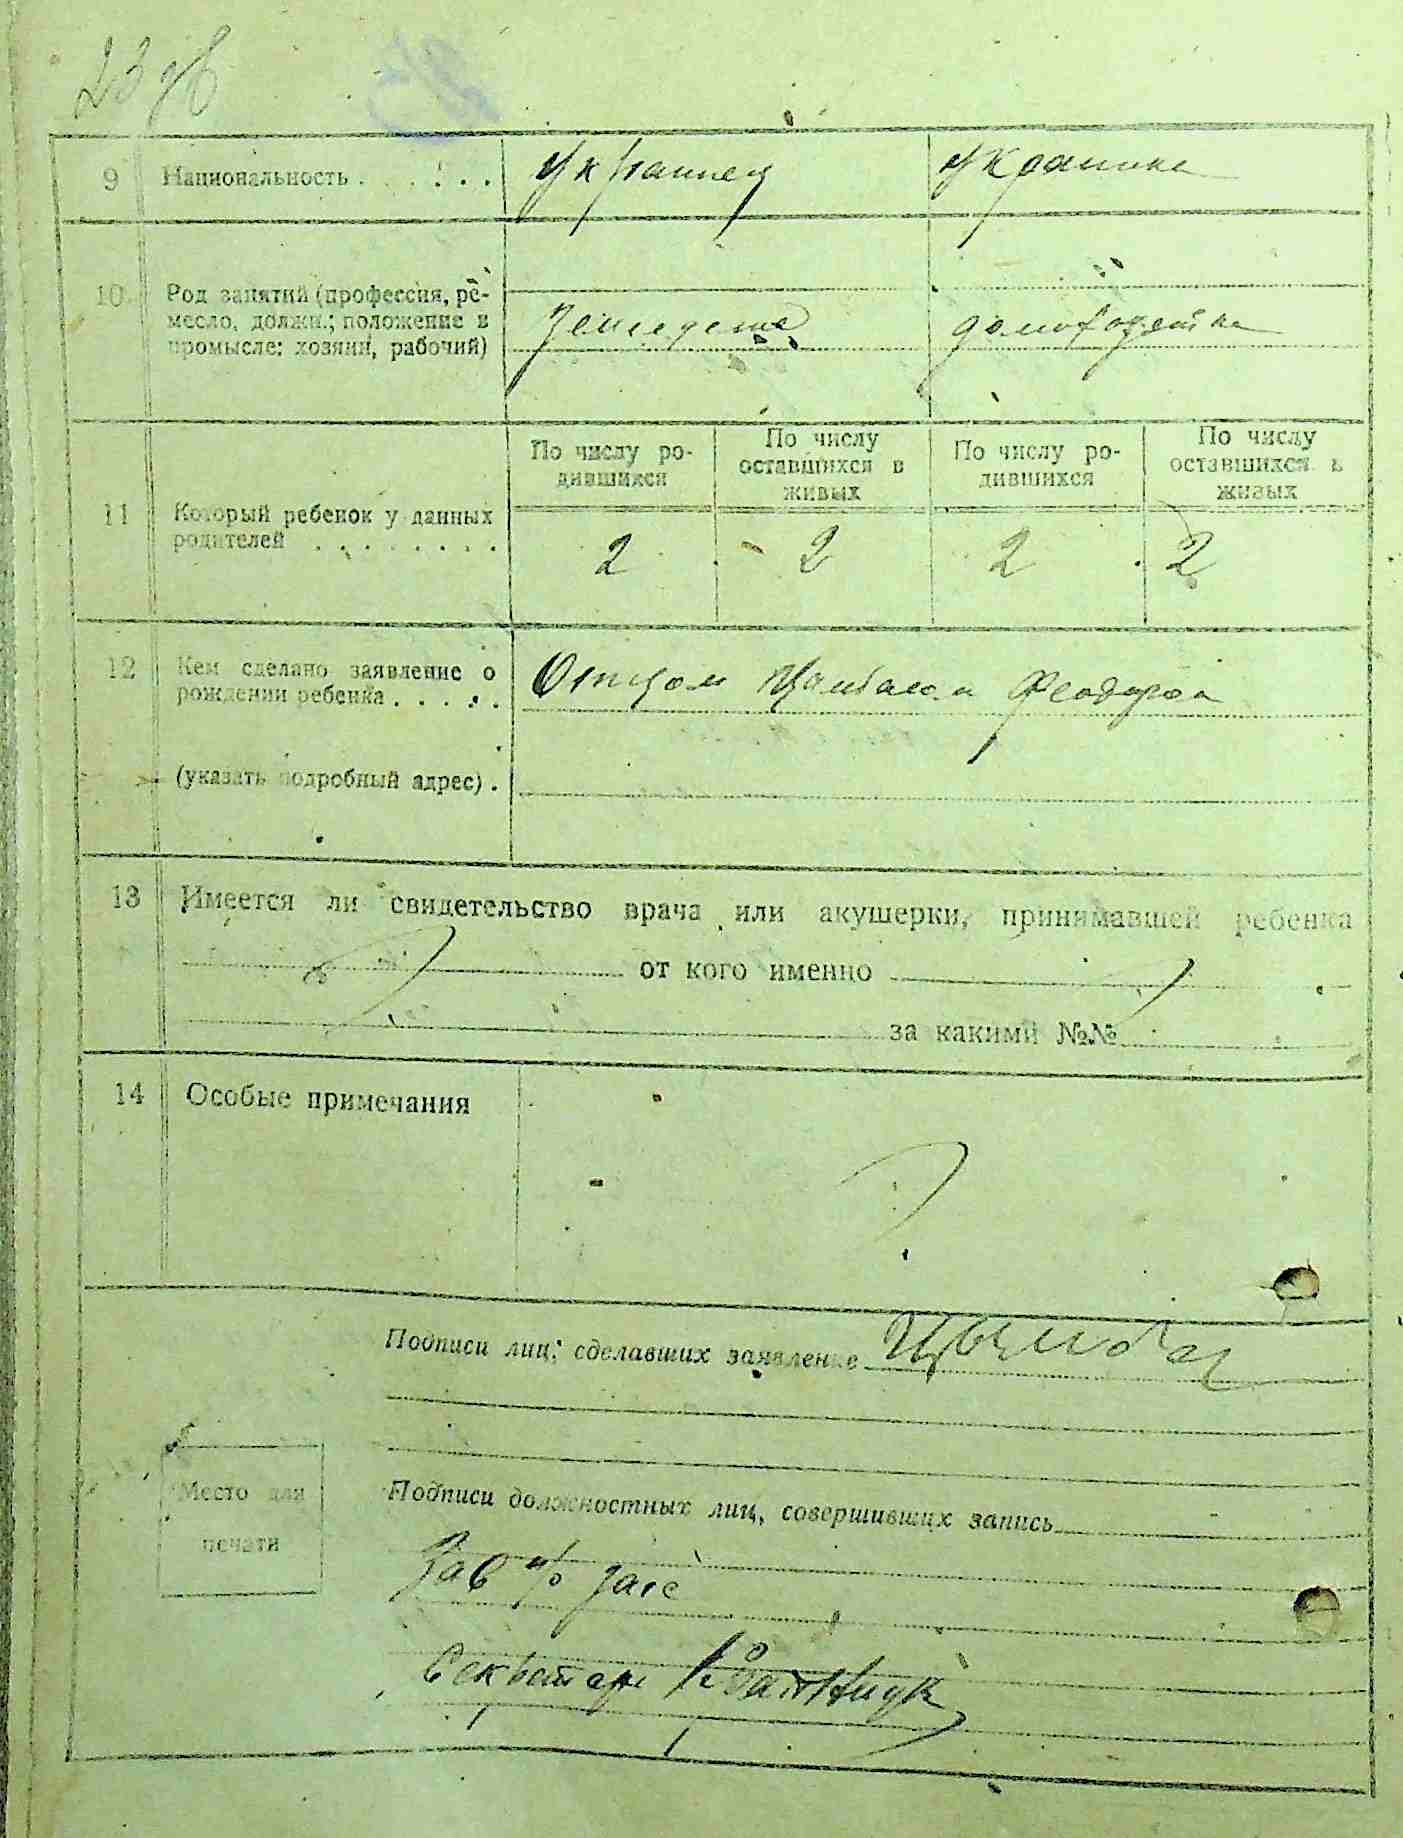 23 об
9 Национальность . . . . . . Украинец Украинка
10 Род занятий (профессия, ре-
месло, должн.; положение в
промысле: хозяин, рабочий)
домохозяйка
11 Который ребенок у данных
родителей . . . . . . . .
По числу ро-
дившихся
По числу
оставшихся в
живых
По числу ро-
дившихся
По числу
оставшихся в
живых
2 2 2 2
12 Кем сделано заявление о
рождении ребенка . . . . .
Отцом Феодором
(указать подробный адрес) .
13 Имеется ли свидетельство врача или акушерки, принимавшей ребенка
от кого именно
за какими №№
14 Особые примечания
Подписи лиц, сделавших заявление
Место для
печати
Подписи должностных лиц, совершивших запись
Зав загс
Секретарь